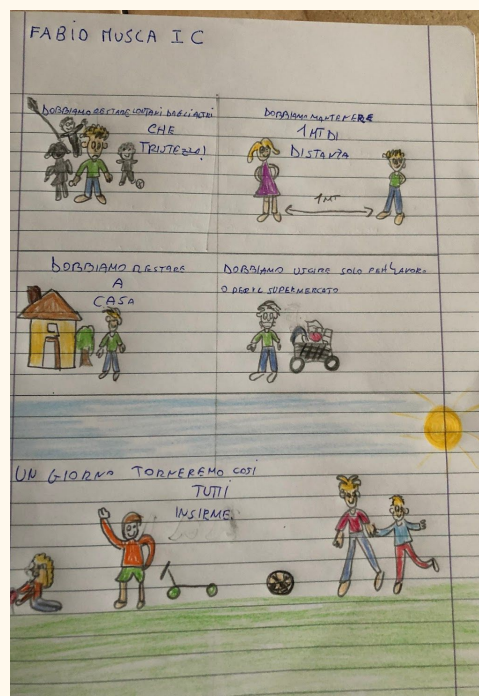 FABIO MUSCA I C
DOBBIAMO RESTARE LONTANI DAGLI ALTRI
CHE
TRISTEZZA!
DOBBIAMO MANTENERE
1 MT DI
DISTANZA
1 MT
DOBBIAMO RESTARE
A
CASA
DOBBIAMO USCIRE SOLO PER LAVORO
O PER IL SUPERMERCATO
UN GIORNO TORNEREMO COSÌ
TUTTI
INSIEME